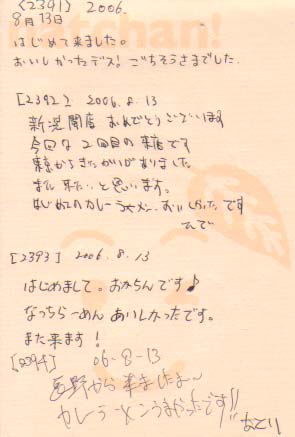 (2391) 2006.
8月13日
はじめて来ました。
おいしかったデス! ごちそうさまでした.
[2392] 2006.8.13
新潟開店おめでとうございます
今回は2回目の来店です
東京からきたかいがありました。
また来たいと思います。
はじめてのカレーらーめん、おいしかったです
[2393] 2006.8.13
はじめまして。おかちんです♪
なっちらーめんおいしかったです。
また来ます!
[2394] 06-8-13
長野から来ましたよ〜
カレーラーメンうまかったです!!